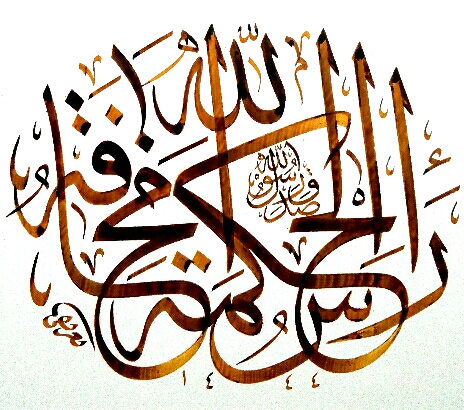 رَأْسُ الْحِكْمَةِ مَخَافَةُ اللّٰهِ
صدق رسول الله